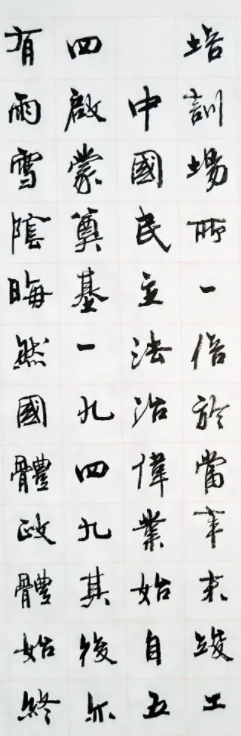 培訓場所一倍於當年未竣工
中國民主法治偉業始自五
四啟蒙奠基一九四九其後亦
有雨雪陰晦然國體政體始終